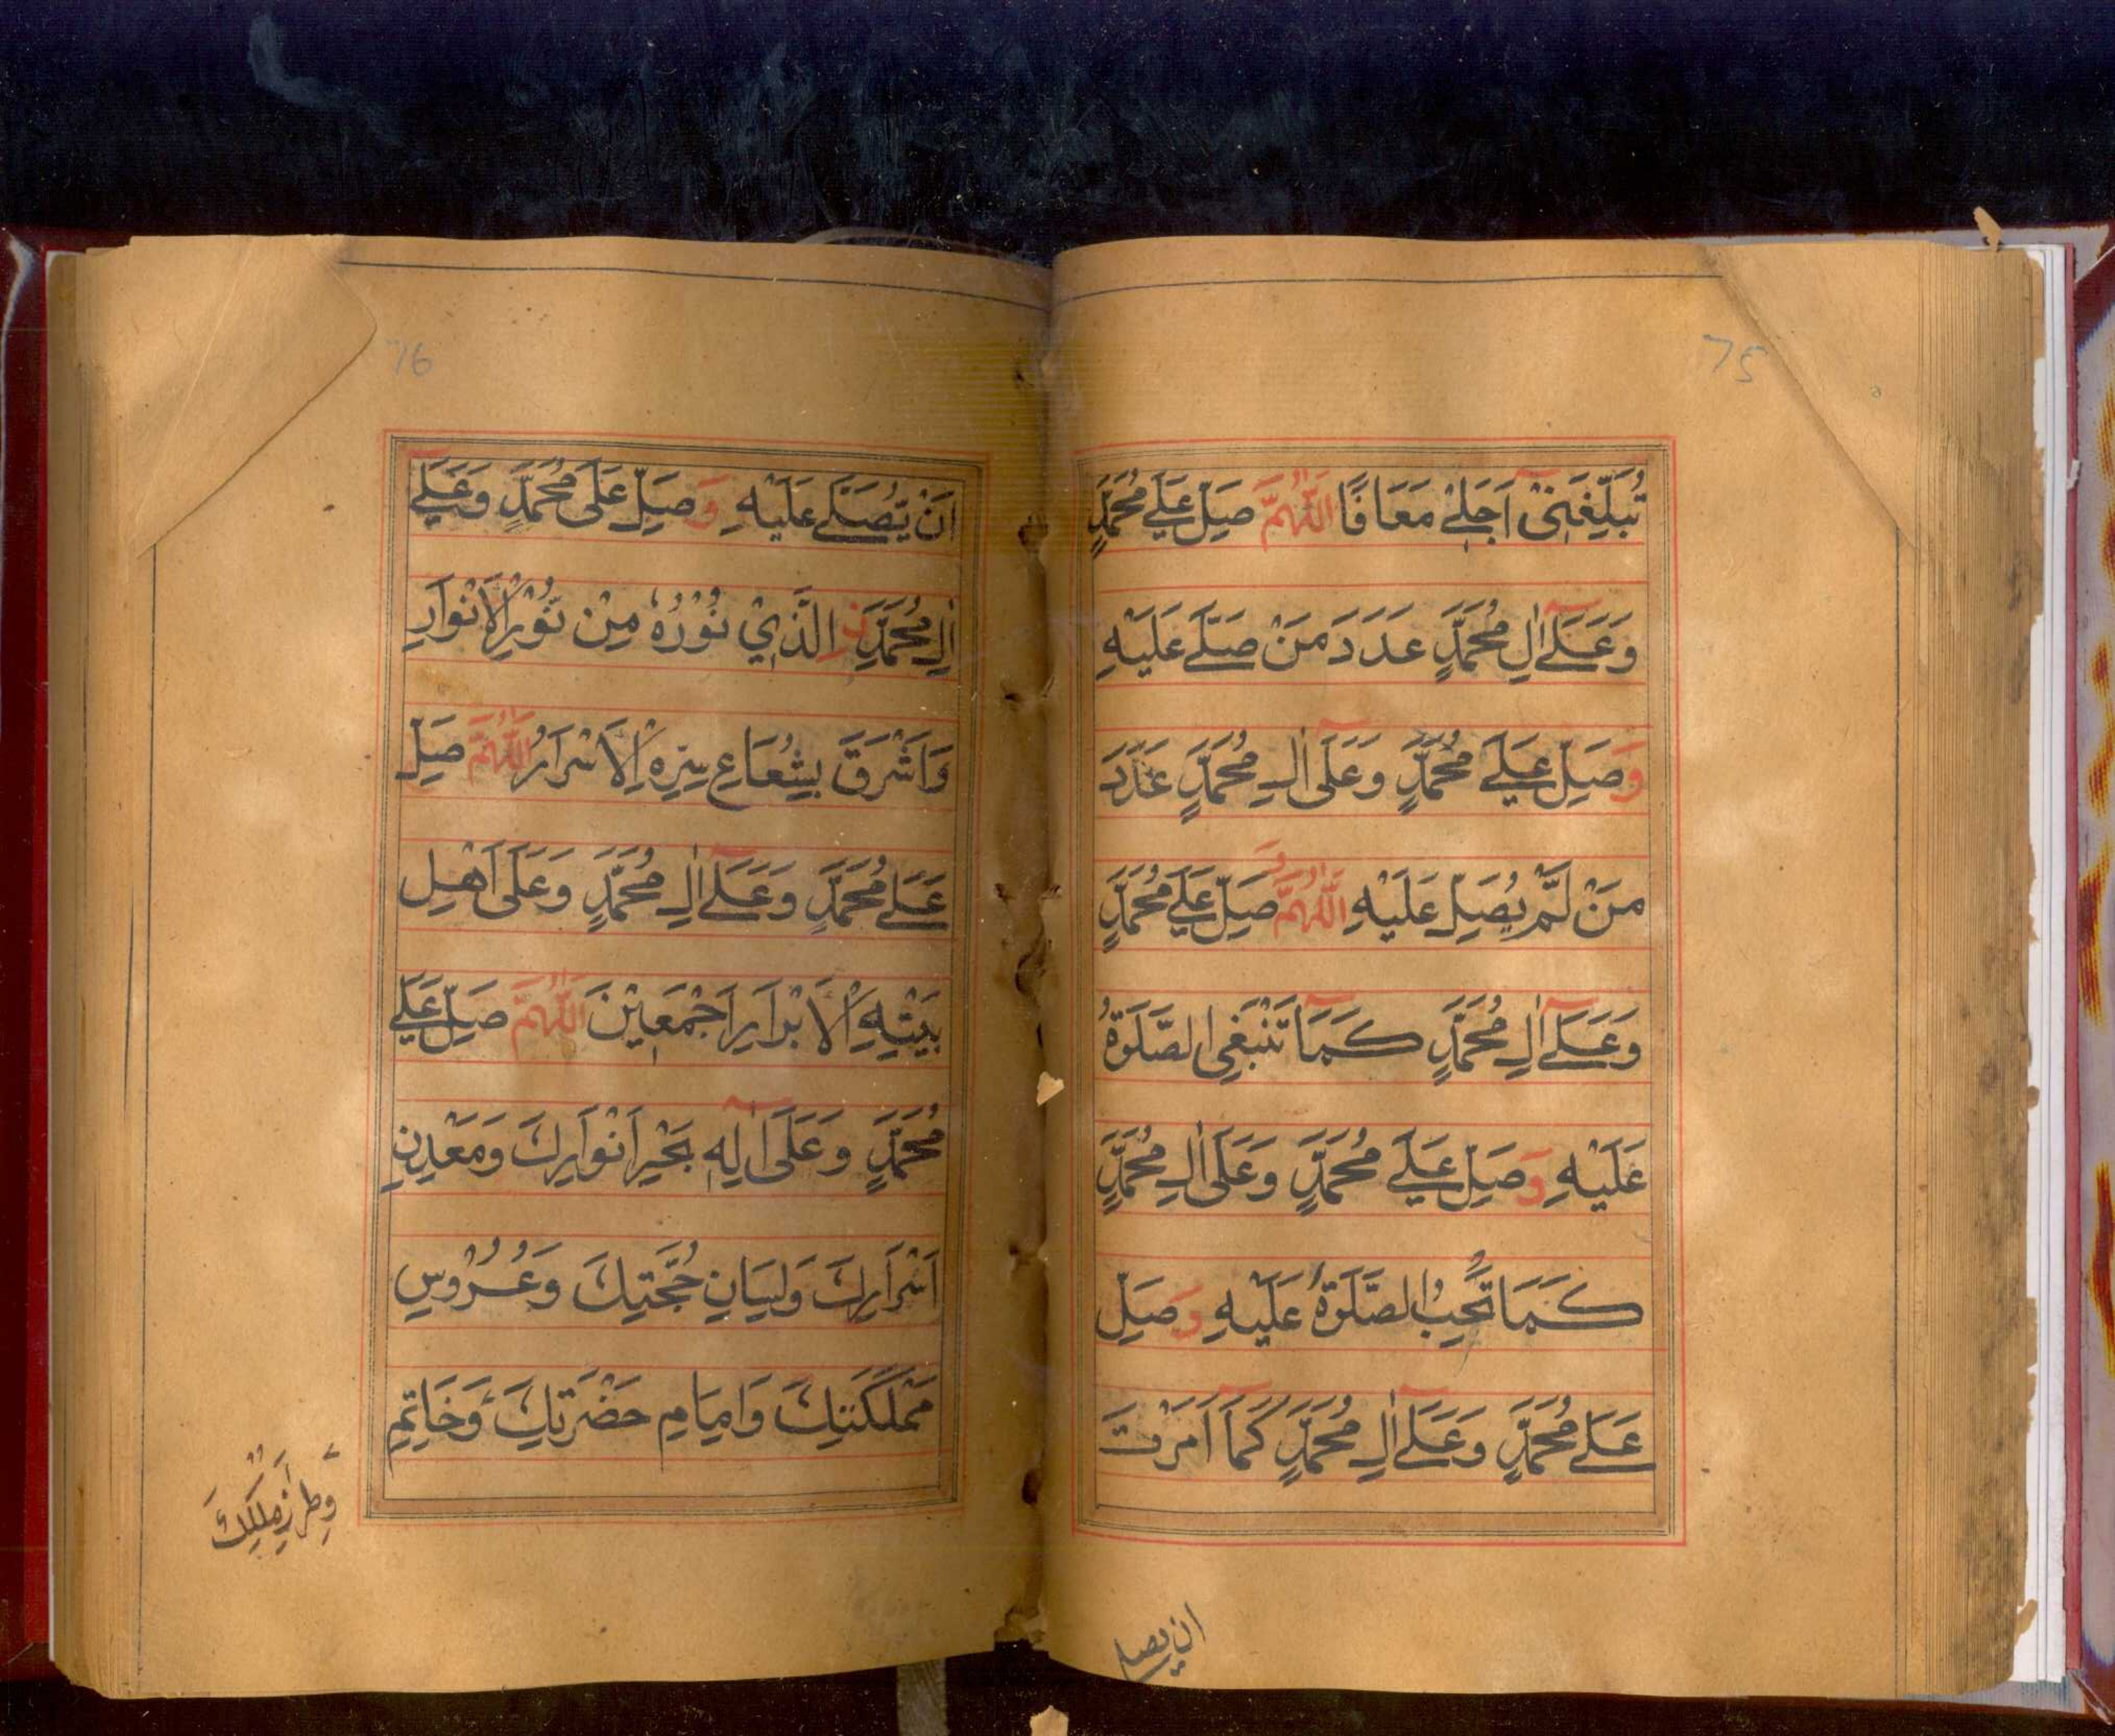 75
تُبَلِّغَنِيْ اَجَلِيْ مَعَافًا اَللّٰهُمَّ صَلِّ عَلٰے مُحَمَّدٍ
وَعَلٰٓے اٰلِ مُحَمَّدٍ عَدَدَ مَنْ صَلّٰے عَلَيْهِ
وَصَلِّ عَلٰے مُحَمَّدٍ وَعَلٰٓى اٰلِ مُحَمَّدٍ عَدَدَ
مَنْ لَّمْ يُصَلِّ عَلَيْهِ اَللّٰهُمَّ صَلِّ عَلٰے مُحَمَّدٍ
وَعَلٰٓے اٰلِ مُحَمَّدٍ كَمَا تَنْبَغِي الصَّلٰوةُ
عَلَيْهِ وَصَلِّ عَلٰے مُحَمَّدٍ وَعَلٰٓى اٰلِ مُحَمَّدٍ
كَمَا تُحِبُّ الصَّلٰوةُ عَلَيْهِ وَصَلِّ
عَلٰے مُحَمَّدٍ وَعَلٰٓے اٰلِ مُحَمَّدٍ كَمَآ اَمَرْتَ
ان يصلے
76
اَنْ يُّصَلّٰے عَلَيْهِ وَصَلِّ عَلٰى مُحَمَّدٍ وَعَلٰٓے
اٰلِ مُحَمَّدِنِ الَّذِيْ نُوْرُهٗ مِنْ نُّوْرِ الْاَنْوَارِ
وَاَشْرَقَ بِشُعَاعِ سِرِّهِ الْاَسْرَارُ اَللّٰهُمَّ صَلِّ
عَلٰے مُحَمَّدٍ وَعَلٰٓے اٰلِ مُحَمَّدٍ وَعَلٰٓى اَهْلِ
بَيْتِهِ الْاَبْرَارِ اَجْمَعِيْنَ اَللّٰهُمَّ صَلِّ عَلٰے
مُحَمَّدٍ وَعَلٰٓى اٰلِهٖ بَحْرِ اَنْوَارِكَ وَمَعْدِنِ
اَسْرَارِكَ وَلِسَانِ حُجَّتِكَ وَعُرُوْسِ
مَمْلَكَتِكَ وَاِمَامِ حَضْرَتِكَ وَخَاتِمِ
وَطِرَازِ مُلْكِكَ